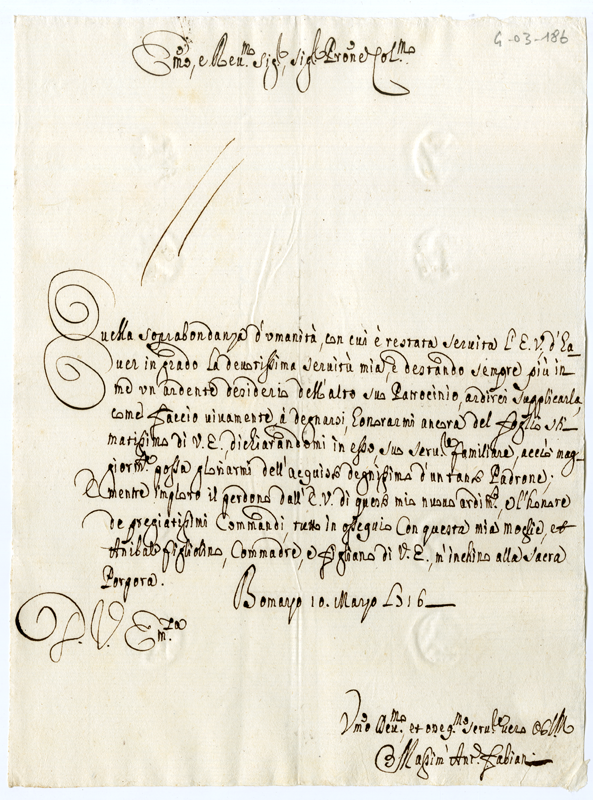 G-03-186
Em.º, e Reu.mo Sig.r, Sig.r Prone Col.mo
Quella soprabondanza d'vmanità, con cui è restata seruita l'E.V. d'ha-
uer in grado la deuotissima seruitù mia, è destando sempre più in
me vn ardente desiderio dell'alto suo Patrocinio, ardirei supplicarla,
come faccio viuamente, à degnarsi, honorarmi ancora del foglio sti-
matissimo di V.E. dichiarandomi in esso suo seru.re familiare, acciò mag-
giorm.te possa gloriarmi dell'acquisto degnissimo d'un tanto Padrone.
mente imploro il perdono dall'E.V. di questo mio nuouo ardim.to, e l'honore
de pregiatissimi Commandi, tutto in ossequio con questa mia moglie, et
Anibale figliolino, Commadre, e figliano di V.E., m'inchino alla sacra
Porpora.
Bomarzo 10. Marzo
D. V. Em.za
Vmo Deu.mo et oblig.mo seru.re vero
Massim' Ant.o Fabiani